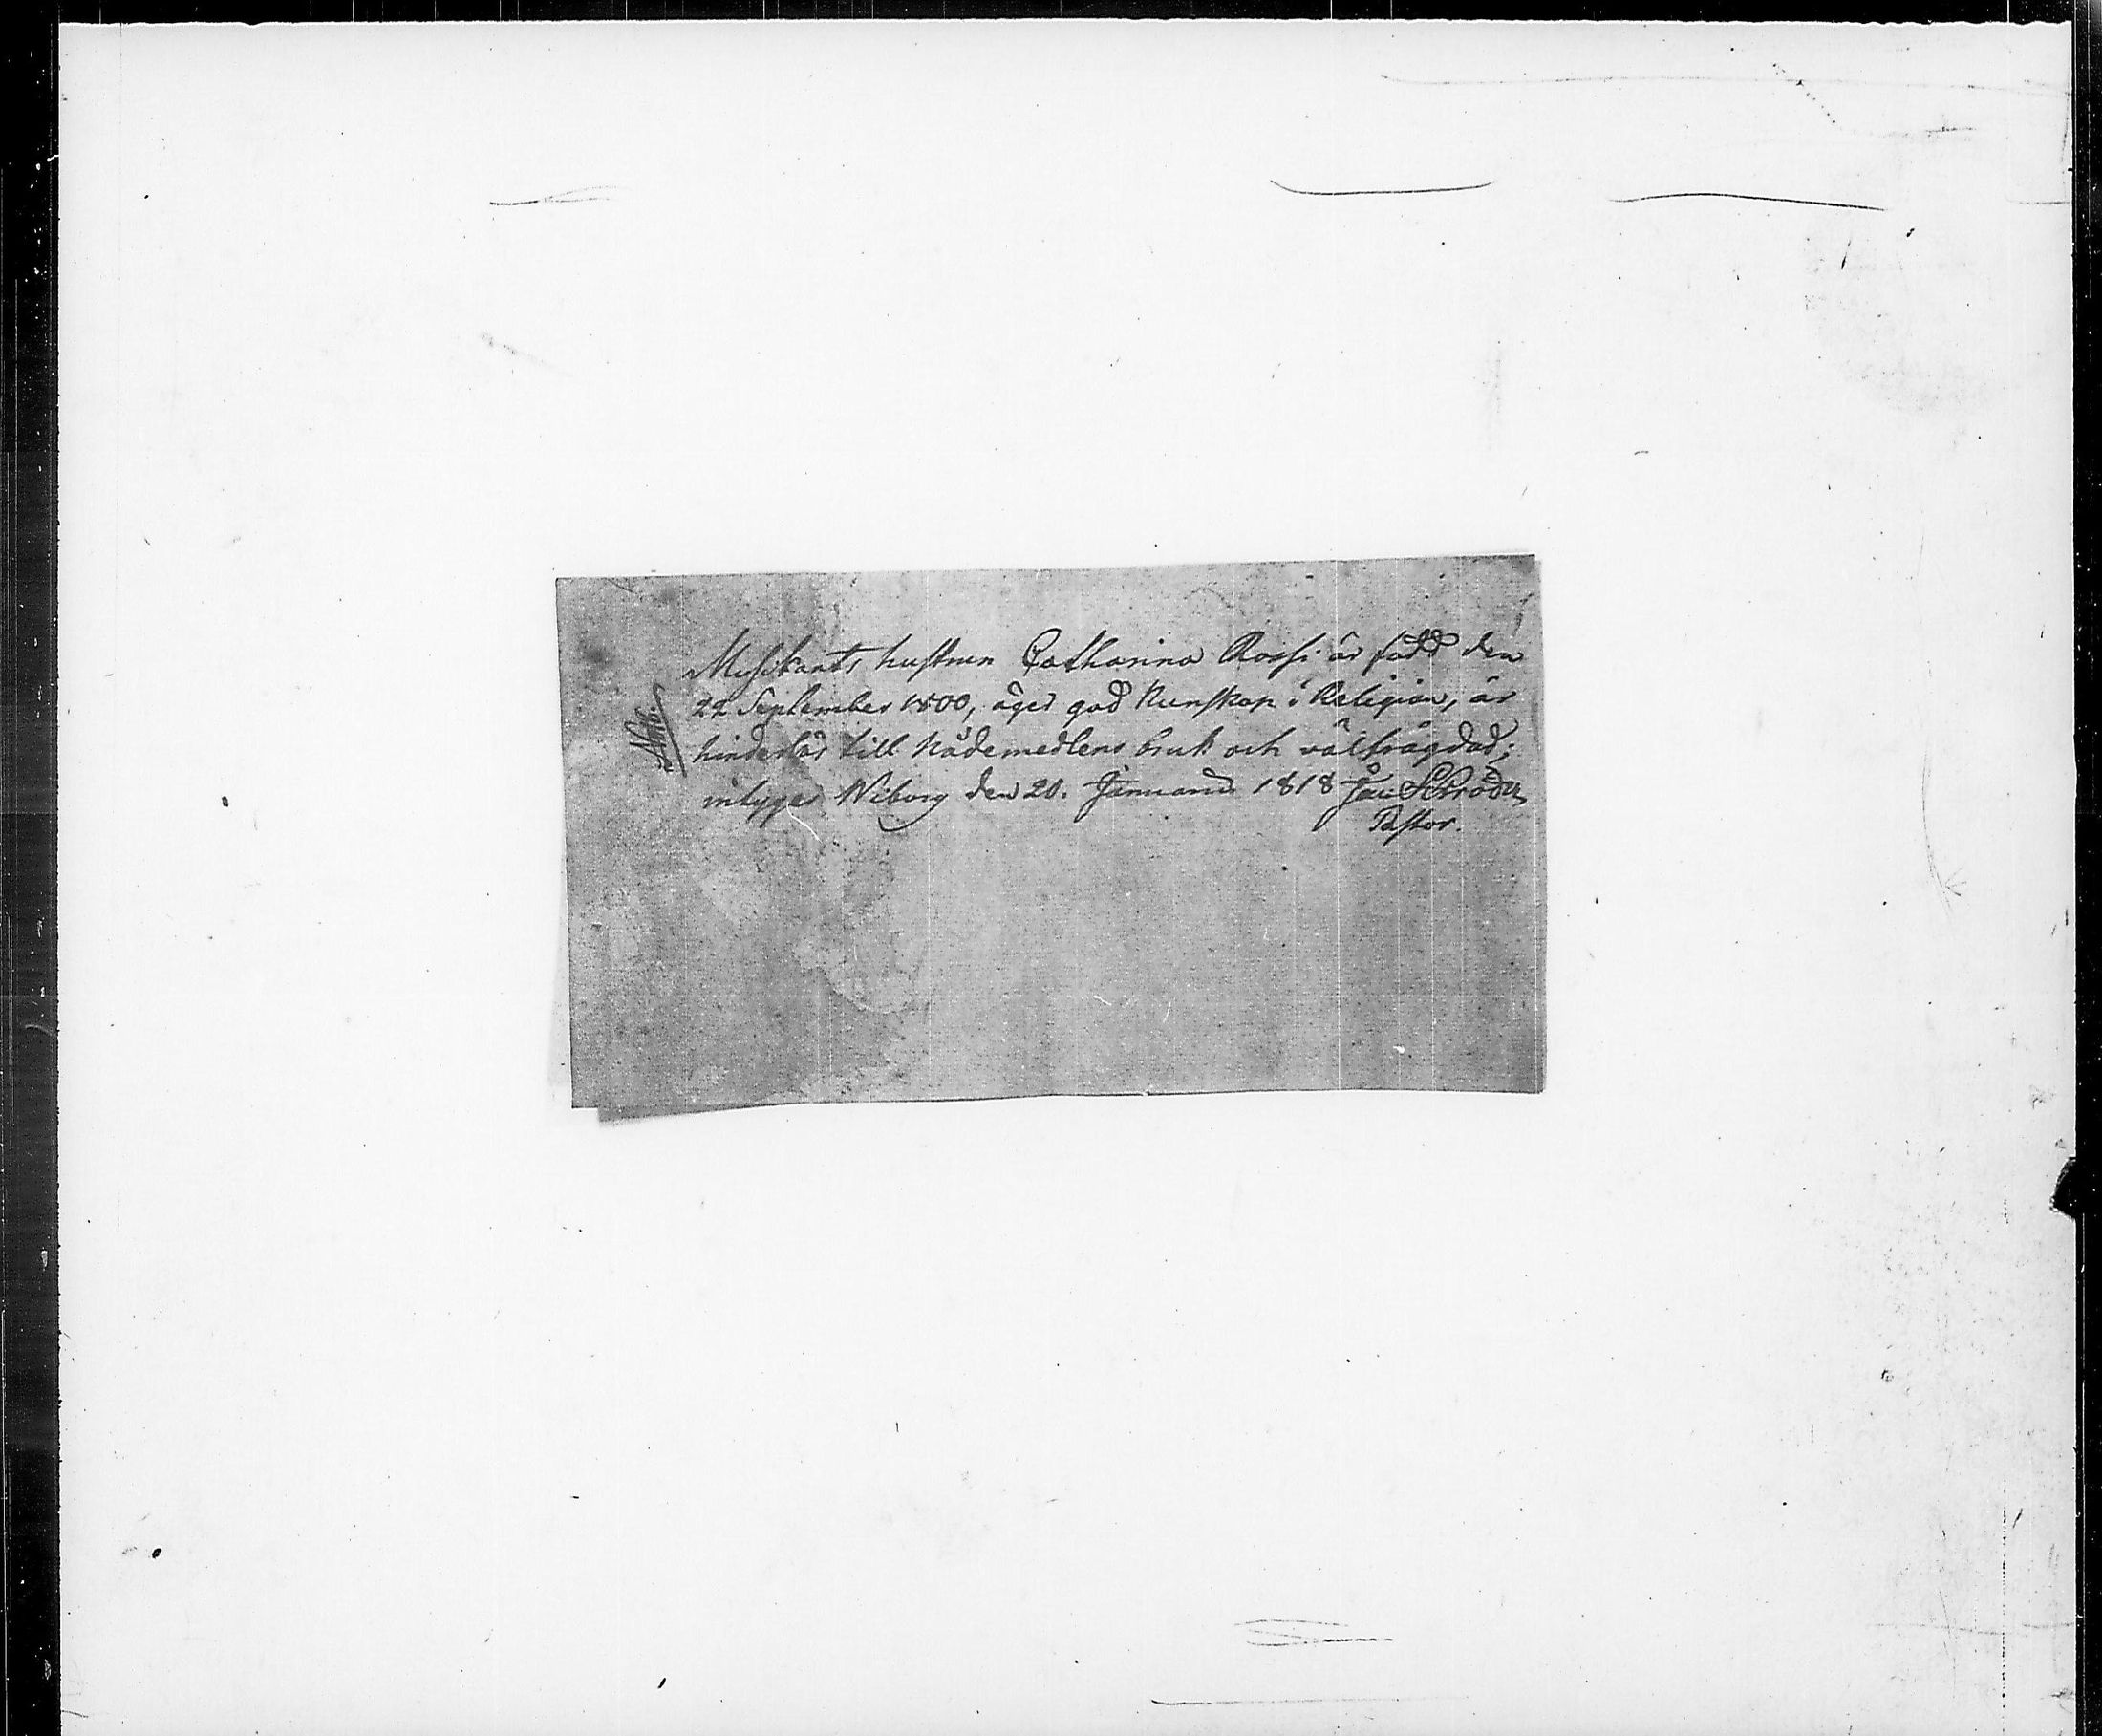 Musikants hustrun Catharina Rossi är född den
22 September 1800, äger god kunskap i Religion, är
hinderlös till Nådemedlens bruk och välfrägdad;
intygar Wiborg den 20. Januarii 1818 Schröder
Pastor.